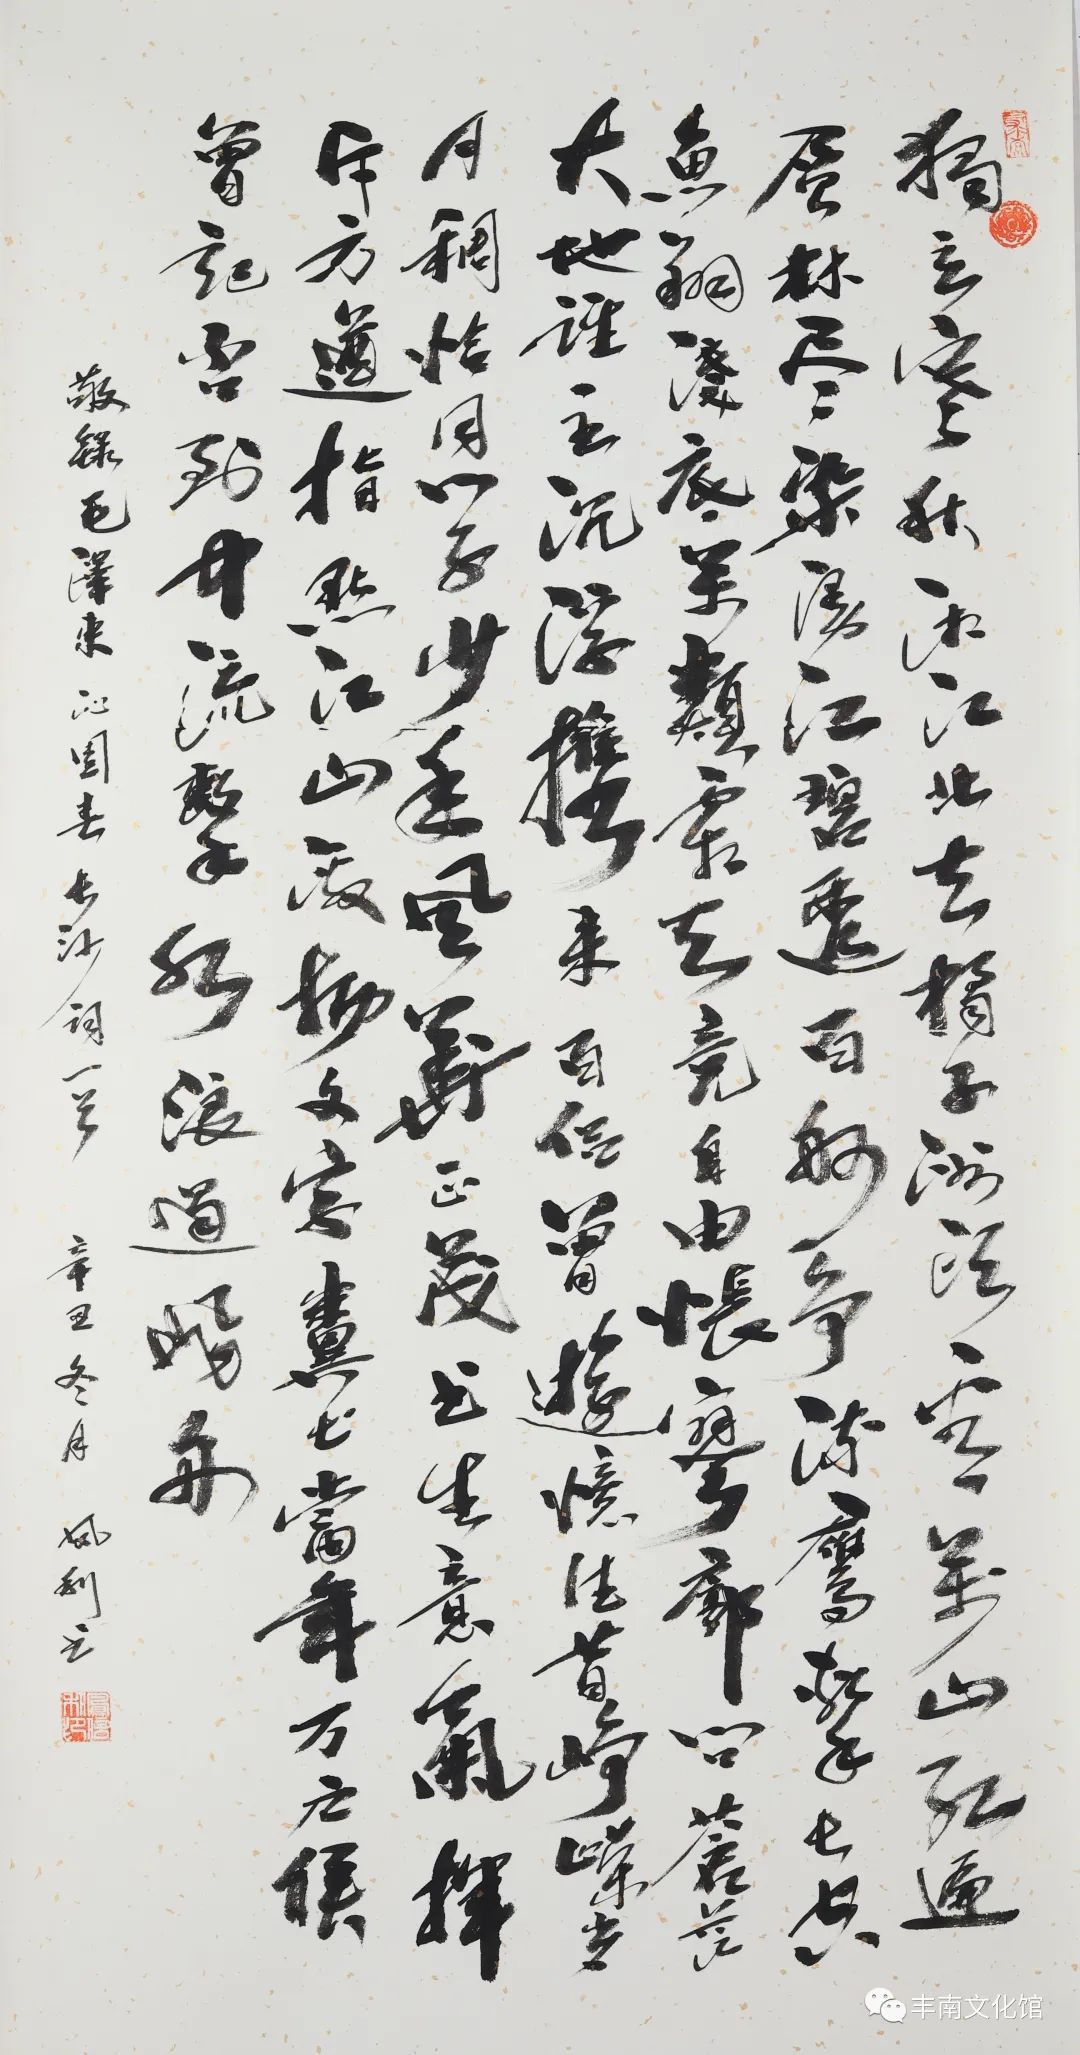 獨立寒秋湘江北去橘子洲頭看萬山紅遍
層林尽染漫江碧透百舸争流鷹擊長空
魚翔淺底萬類霜天競自由悵寥廓問蒼茫
大地誰主沉浮攜来百侣曾遊憶往昔崢嶸岁
月稠恰同学少年風華正茂书生意氣揮
斥方遒指點江山激扬文字糞土當年万户侯
曾記否到中流擊水浪遏飛舟
敬錄毛澤東沁園春長沙詞一首 辛丑冬月 凤利
丰南文化馆